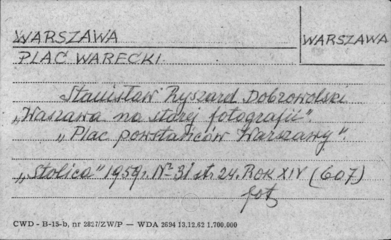 WARSZAWA
WARSZAWA
PLAC WARECKI
Stanisław Ryszard Dobrowolski
„Warszawa na starej fotografii".
„Plac powstańców Warszawy".
„Stolica" 1959r. Nr 31 st. 24. ROK XIV (607)
fot
CWD - B-15-b, nr 2827/ZW/P — WDA 2694 13.12.62 1.700.000